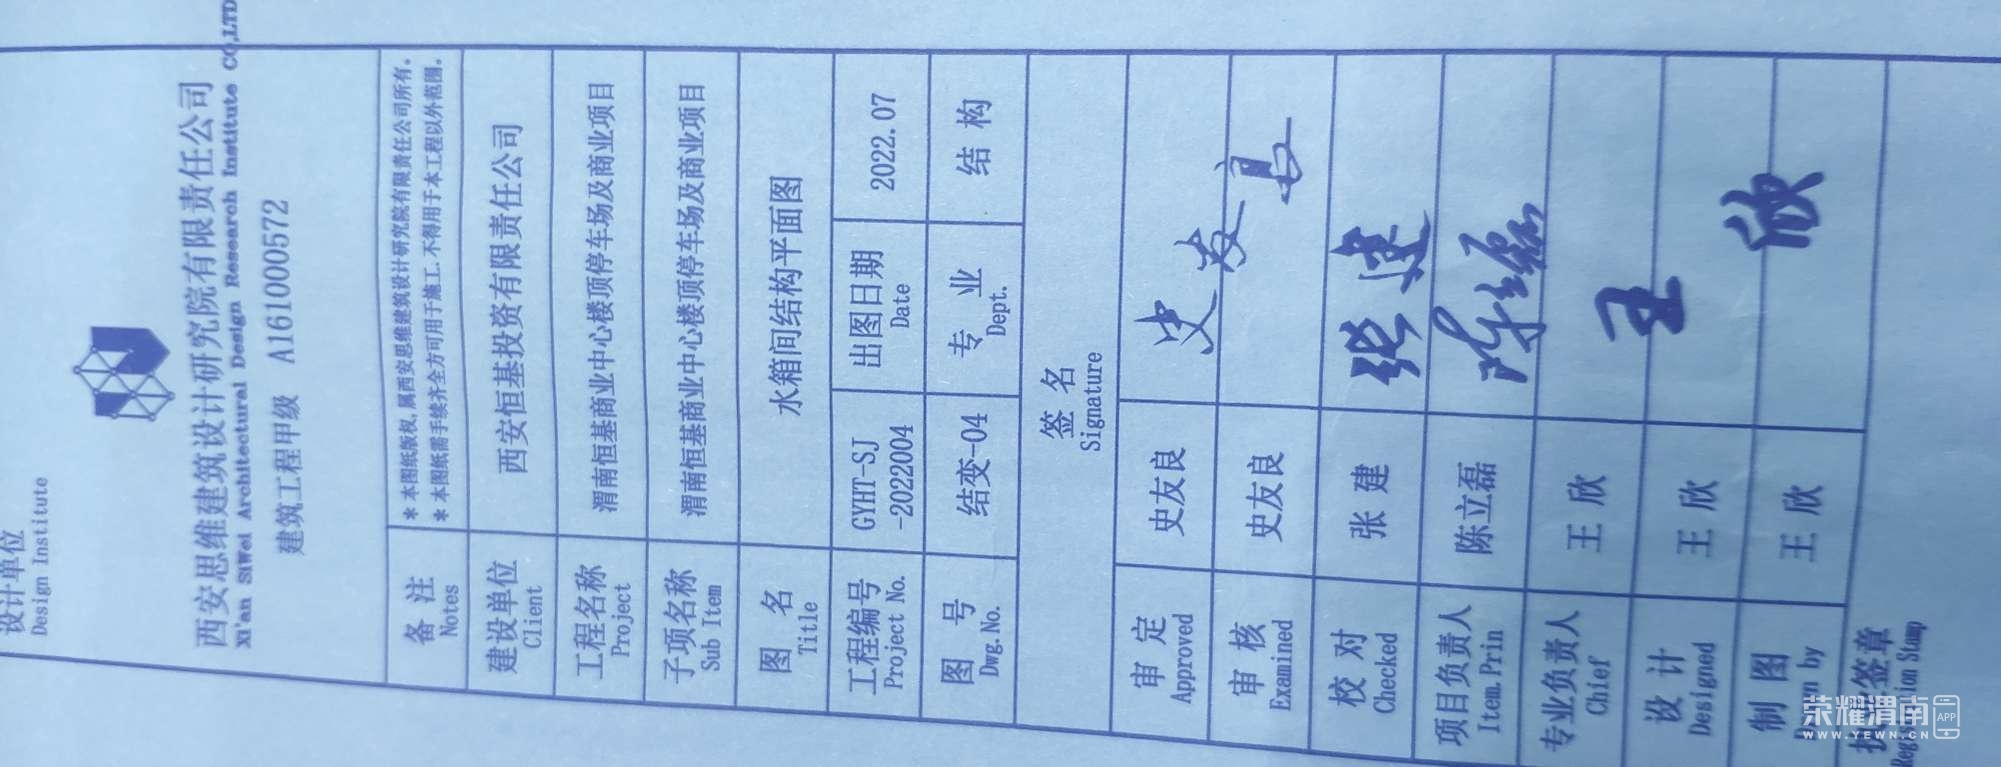 设计单位
Design Institute
西安思维建筑设计研究院有限责任公司
Xi'an SiWei Architectural Design Research Institute CO,LTD
建筑工程甲级 A161000572
备 注
Notes
＊本图纸版权,属西安思维建筑设计研究院有限责任公司所有。
＊本图纸需手续齐全方可用于施工.不得用于本工程以外范围。
建设单位
Client
西安恒基投资有限责任公司
工程名称
Project
渭南恒基商业中心楼顶停车场及商业项目
子项名称
Sub Item
渭南恒基商业中心楼顶停车场及商业项目
图 名
Title
水箱间结构平面图
工程编号
Project No.
GYHT-SJ
-2022004
出图日期
Date
2022.07
图 号
Dwg.No.
结变-04
专 业
Dept.
结 构
签 名
Signature
审 定
Approved
史友良
史友良
审 核
Examined
史友良
校 对
Checked
张 建
张建
项目负责人
Item.Prin
陈立磊
陈立磊
专业负责人
Chief
王 欣
设 计
Designed
王 欣
王欣
制 图
Drawn by
王 欣
执业签章
Registration Stamp
荣耀渭南
APP
WWW.YEWN.CN